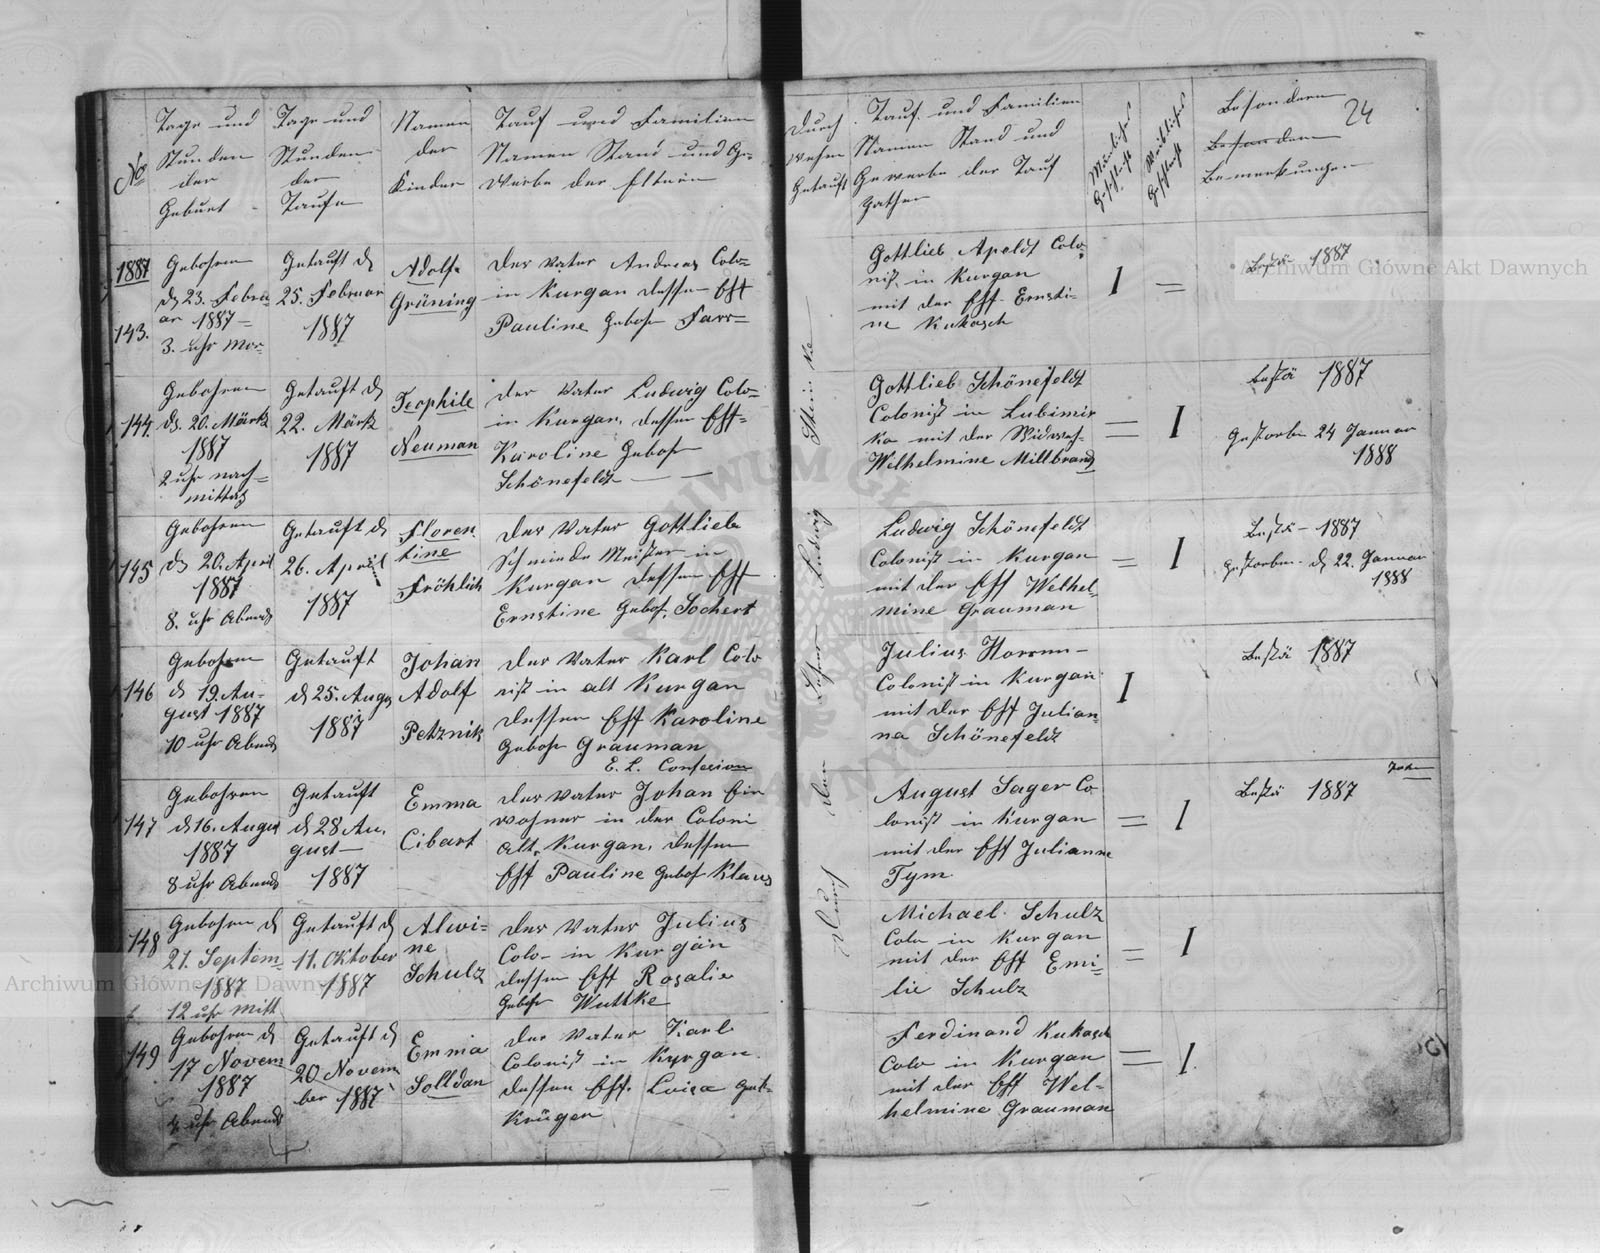 24
No
Tage und
Stunden
der
Geburt
Tage und
Stunden
der
Taufe
Namen
der
Kinder
Tauf und Familien
Namen Stand und Ge-
werbe der Eltern
Durch
wehm
Getauft
Tauf und Familien
Namen Stand und
Gewerbe der Tauf
pathen
Mänliches
Geschlecht
Weibliches
Geschlecht
Besondere
Besondere
Bemerkungen
1887
143.
Gebohren
d 23. Febru
ar 1887
3. uhr Mor-
Getauft d
25. Februar
1887
Adolf
Grüning
Der Vater Andreas Colo-
in Kurgan dessen Eh
Pauline geboh Farr-
Gottlieb Apeldt Colo
nist in Kurgan
mit der Ehf. Ernsti-
ne Kukasch
I =
Bestä 1887
144.
Gebohren
d. 20. Märtz
1887
2 uhr nach-
mittag
Getauft d
22. Märtz
1887
Teophile
Neuman
Der Vater Ludwig Colo-
in Kurgan, dessen Ehf-
Karoline geboh
Schönefeldt
Gottlieb Schönefeldt
Colonist in Lubimir
ka mit der
Welhelmine Millbrandt
= I
bestä 1887
gestorben 24 Januar
1888
145
Gebohren
d 20. April
1887
8. uhr Abends
Getauft d
26. April
1887
Floren
tine
Fröhlich
Der Vater Gottlieb
Schmiede Meister in
Kurgan dessen Ehf
Ernstine geboh. Sochert
Ludwig Schönefeldt
Colonist in Kurgan
mit der Ehf Welhel-
mine Grauman
= I
Bestä - 1887
gestorben d 22. Januar
1888
146
Gebohren
d 19. Au-
gust 1887
10 uhr Abends
Getauft
d 25. Augus
1887
Johan
Adolf
Petznik
Der Vater Karl Colo
nist in alt Kurgan
dessen Ehf Karoline
geboh Grauman
E. L. Confesion
Julius
Colonist in Kurgan
mit der Ehf Julian-
na Schönefeldt
I
Bestä 1887
147
Gebohren
d 16. August
1887
8 uhr Abends
Getauft
d 28 Au.
gust
1887
Emma
Cibart
Der Vater Johan Ein
wohner in der Coloni
alt. Kurgan, dessen
Ehf Pauline geboh Klaus
August Sager Co
lonist in Kurgan
mit der Ehf Julianne
Tym
= I
Bestä 1887
148
Gebohren d
21. Septem-
1887
12 uhr Mitt
Getauft d
11. Oktober
1887
Alwi-
ne
Schulz
Der Vater Julius
Colo- in Kurgan
dessen Ehf Rosalie
geboh Wuttke
Michael Schulz
Colo in Kurgan
mit der Ehf Emi-
lie Schulz
= I
149
Gebohren d
17 Novem
1887
uhr Abends
Getauft d
20 Novem
ber 1887
Emma
Solldan
Der Vater Karl
Colonist in Kurgan.
dessen Ehf. Luiza geb-
Krüger
Ferdinand Kukasch
Colo in Kurgan
mit der Ehf Wel-
helmine Grauman
= I.
Durch den Lehrer Ludwig
Archiwum Główne Akt Dawnych
Archiwum Główne Akt Dawnych